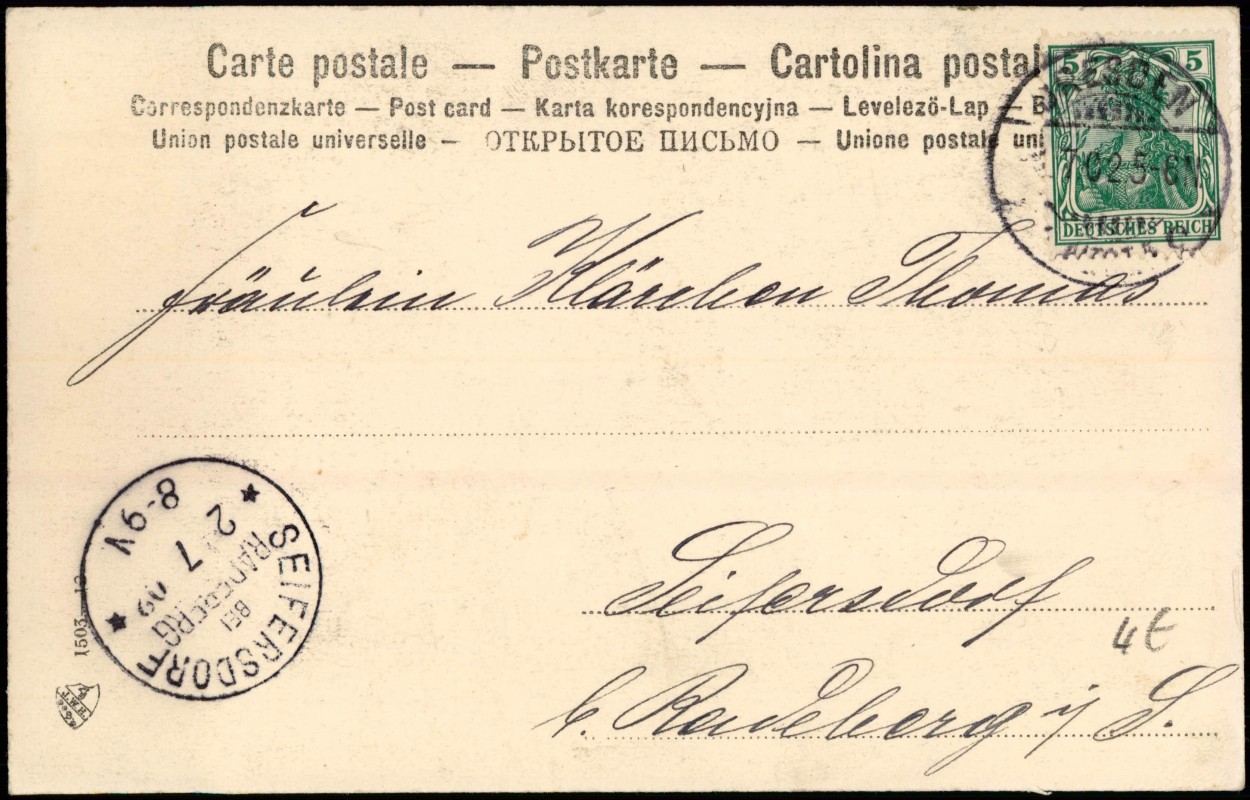 Carte postale — Postkarte — Cartolina postal
Correspondenzkarte — Post card — Karta korespondencyjna — Levelezö-Lap —
Union postale universelle — ОТКРЫТОЕ ПИСЬМО — Unione postale uni
5 5
DEUTSCHES REICH
DRESDEN
7 02 5-6 V
Fräulein Klärchen Thomas
Seifersdorf
b. Radeberg i/ S.
4 €
SEIFERSDORF
BEI
RADEBERG
2 7 02
8-9V
1503
J.W.B.